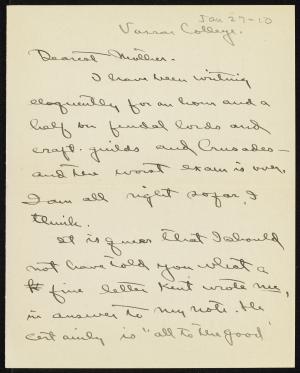 Jan 27-10
Vassar College.
Dearest Mother-
I have been writing
eloquently for an hour and a
half on feudal lords and
craft-guilds and Crusades-
and the worst exam is over.
I am all right so far, I
think.
It is queer that I should
not have told you what a
fine letter Kent wrote me,
in answer to my note. He
certainly is "all to the good"